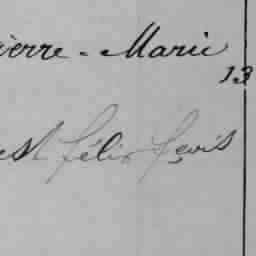 ierre-Marie
13
est félix